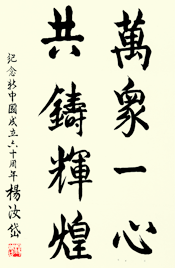 萬眾一心
共鑄輝煌
紀念新中國成立六十周年
楊汝岱